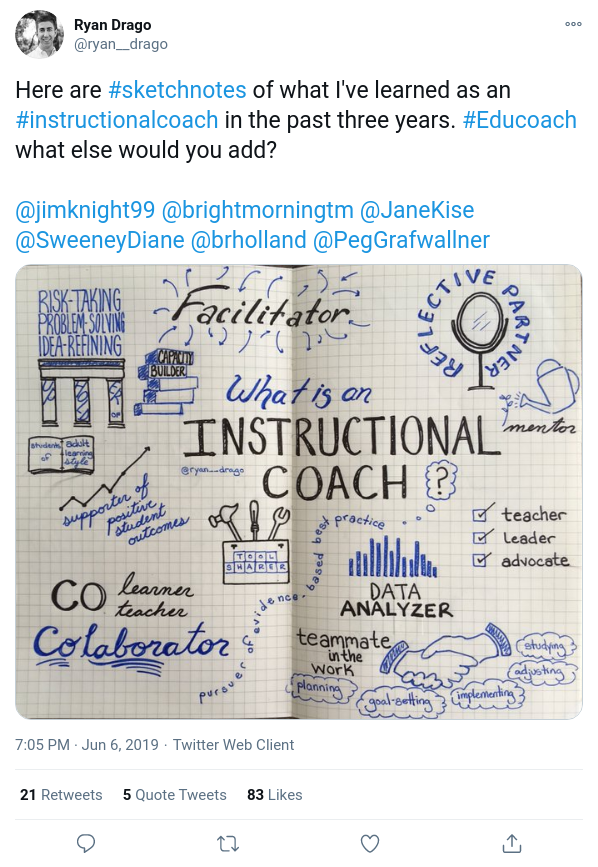 Ryan Drago
@ryan__drago
Here are #sketchnotes of what I've learned as an
#instructionalcoach in the past three years. #Educoach
what else would you add?
@jimknight99 @brightmorningtm @JaneKise
@SweeneyDiane @brholland @PegGrafwallner
RISK-TAKING
PROBLEM-SOLVING
IDEA-REFINING
Facilitator
REFLECTIVE PARTNER
CAPACITY
BUILDER
What is an
INSTRUCTIONAL
COACH ?
@ryan__drago
mentor
students
of
adult
learning
style
supporter of
positive
student
outcomes
TOOL
SHARER
pursuer of evidence-based best practice
teacher
leader
advocate
DATA
ANALYZER
CO learner
teacher
Colaborator
teammate
in the
work
planning
goal-setting
implementing
adjusting
studying
7:05 PM · Jun 6, 2019 · Twitter Web Client
21 Retweets 5 Quote Tweets 83 Likes